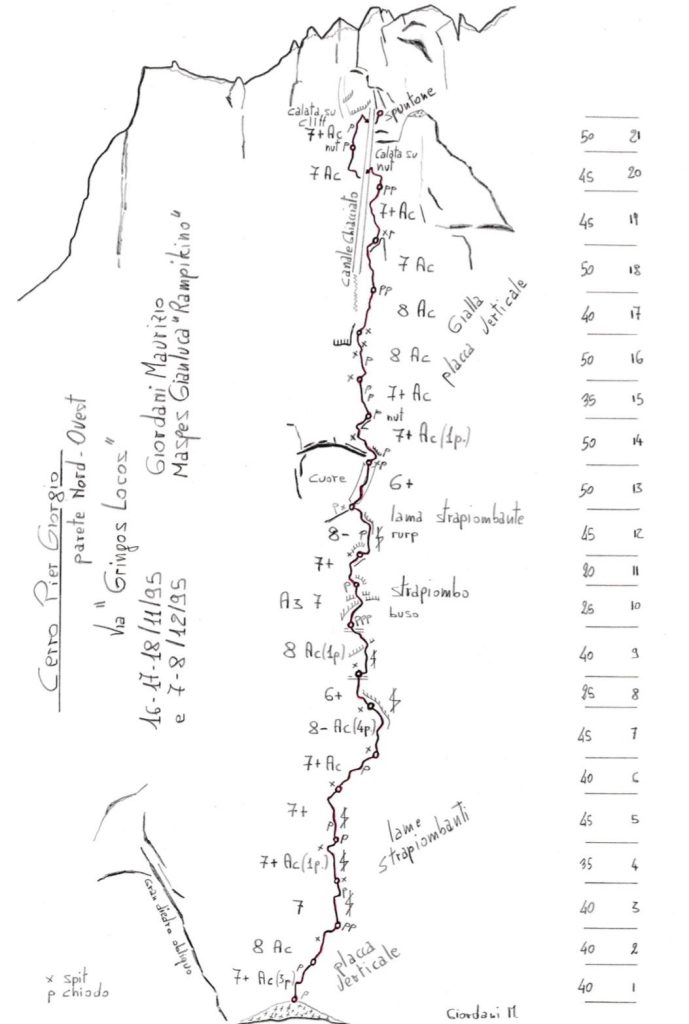 Cerro Pier Giorgio
parete Nord-Ovest
Via "Gringos Locos"
16-17-18/11/95
e 7-8/12/95
Giordani Maurizio
Maspes Gianluca "Rampikino"
spuntone
calata su
cliff
7+Ac
P
nut P
calata su
nut
7 Ac
PP
7+Ac
canale ghiacciato
xP
7 Ac
PP
8 Ac
Gialla
placca verticale
x
x
x P
8 Ac
x
P
P
7+ Ac
P nut
x
7+ Ac (1p.)
P
xP
Cuore
6+
Px
lama strapiombante
8- P
rurp
7+
P
strapiombo
A3 7
buso
PPP
8 Ac(1p)
x
6+
x
8- Ac(4p)
x
P
7+ Ac
x
7+
P
P
lame
strapiombanti
x
7+ Ac(1p.)
x
P
7
PP
x
8 Ac
placca
verticale
P
7+ Ac(3p)
P
Gran diedro obliquo
x spit
p chiodo
Giordani M
50 21
45 20
45 19
50 18
40 17
50 16
35 15
50 14
50 13
45 12
20 11
25 10
40 9
25 8
45 7
40 6
45 5
35 4
40 3
40 2
40 1